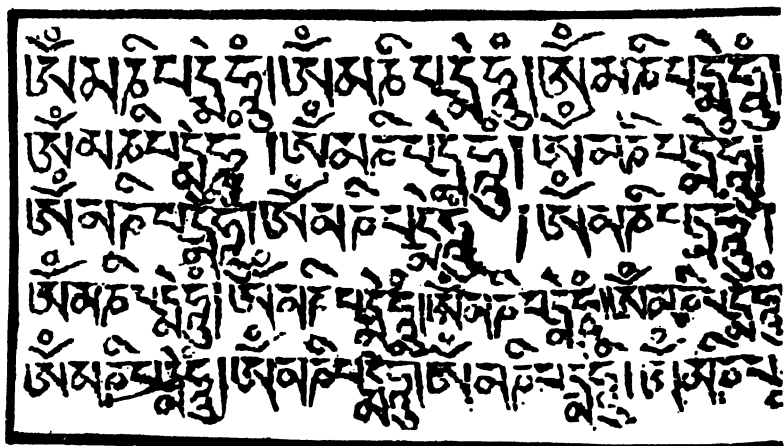 ༀམཎིཔདྨེཧཱུྃ།ༀམཎིཔདྨེཧཱུྃ།ༀམཎིཔདྨེཧཱུྃ
ༀམཎིཔདྨེཧཱུྃ།ༀམཎིཔདྨེཧཱུྃ།ༀམཎིཔདྨེཧཱུྃ།
ༀམཎིཔདྨེཧཱུྃ།ༀམཎིཔདྨེཧཱུྃ།ༀམཎིཔདྨེཧཱུྃ།
ༀམཎིཔདྨེཧཱུྃ།ༀམཎིཔདྨེཧཱུྃ།།ༀམཎིཔདྨེཧཱུྃ།།ༀམཎིཔདྨེཧཱུྃ
ༀམཎིཔདྨེཧཱུྃ།ༀམཎིཔདྨེཧཱུྃ།ༀམཎིཔདྨེཧཱུྃ།ༀམཎིཔ